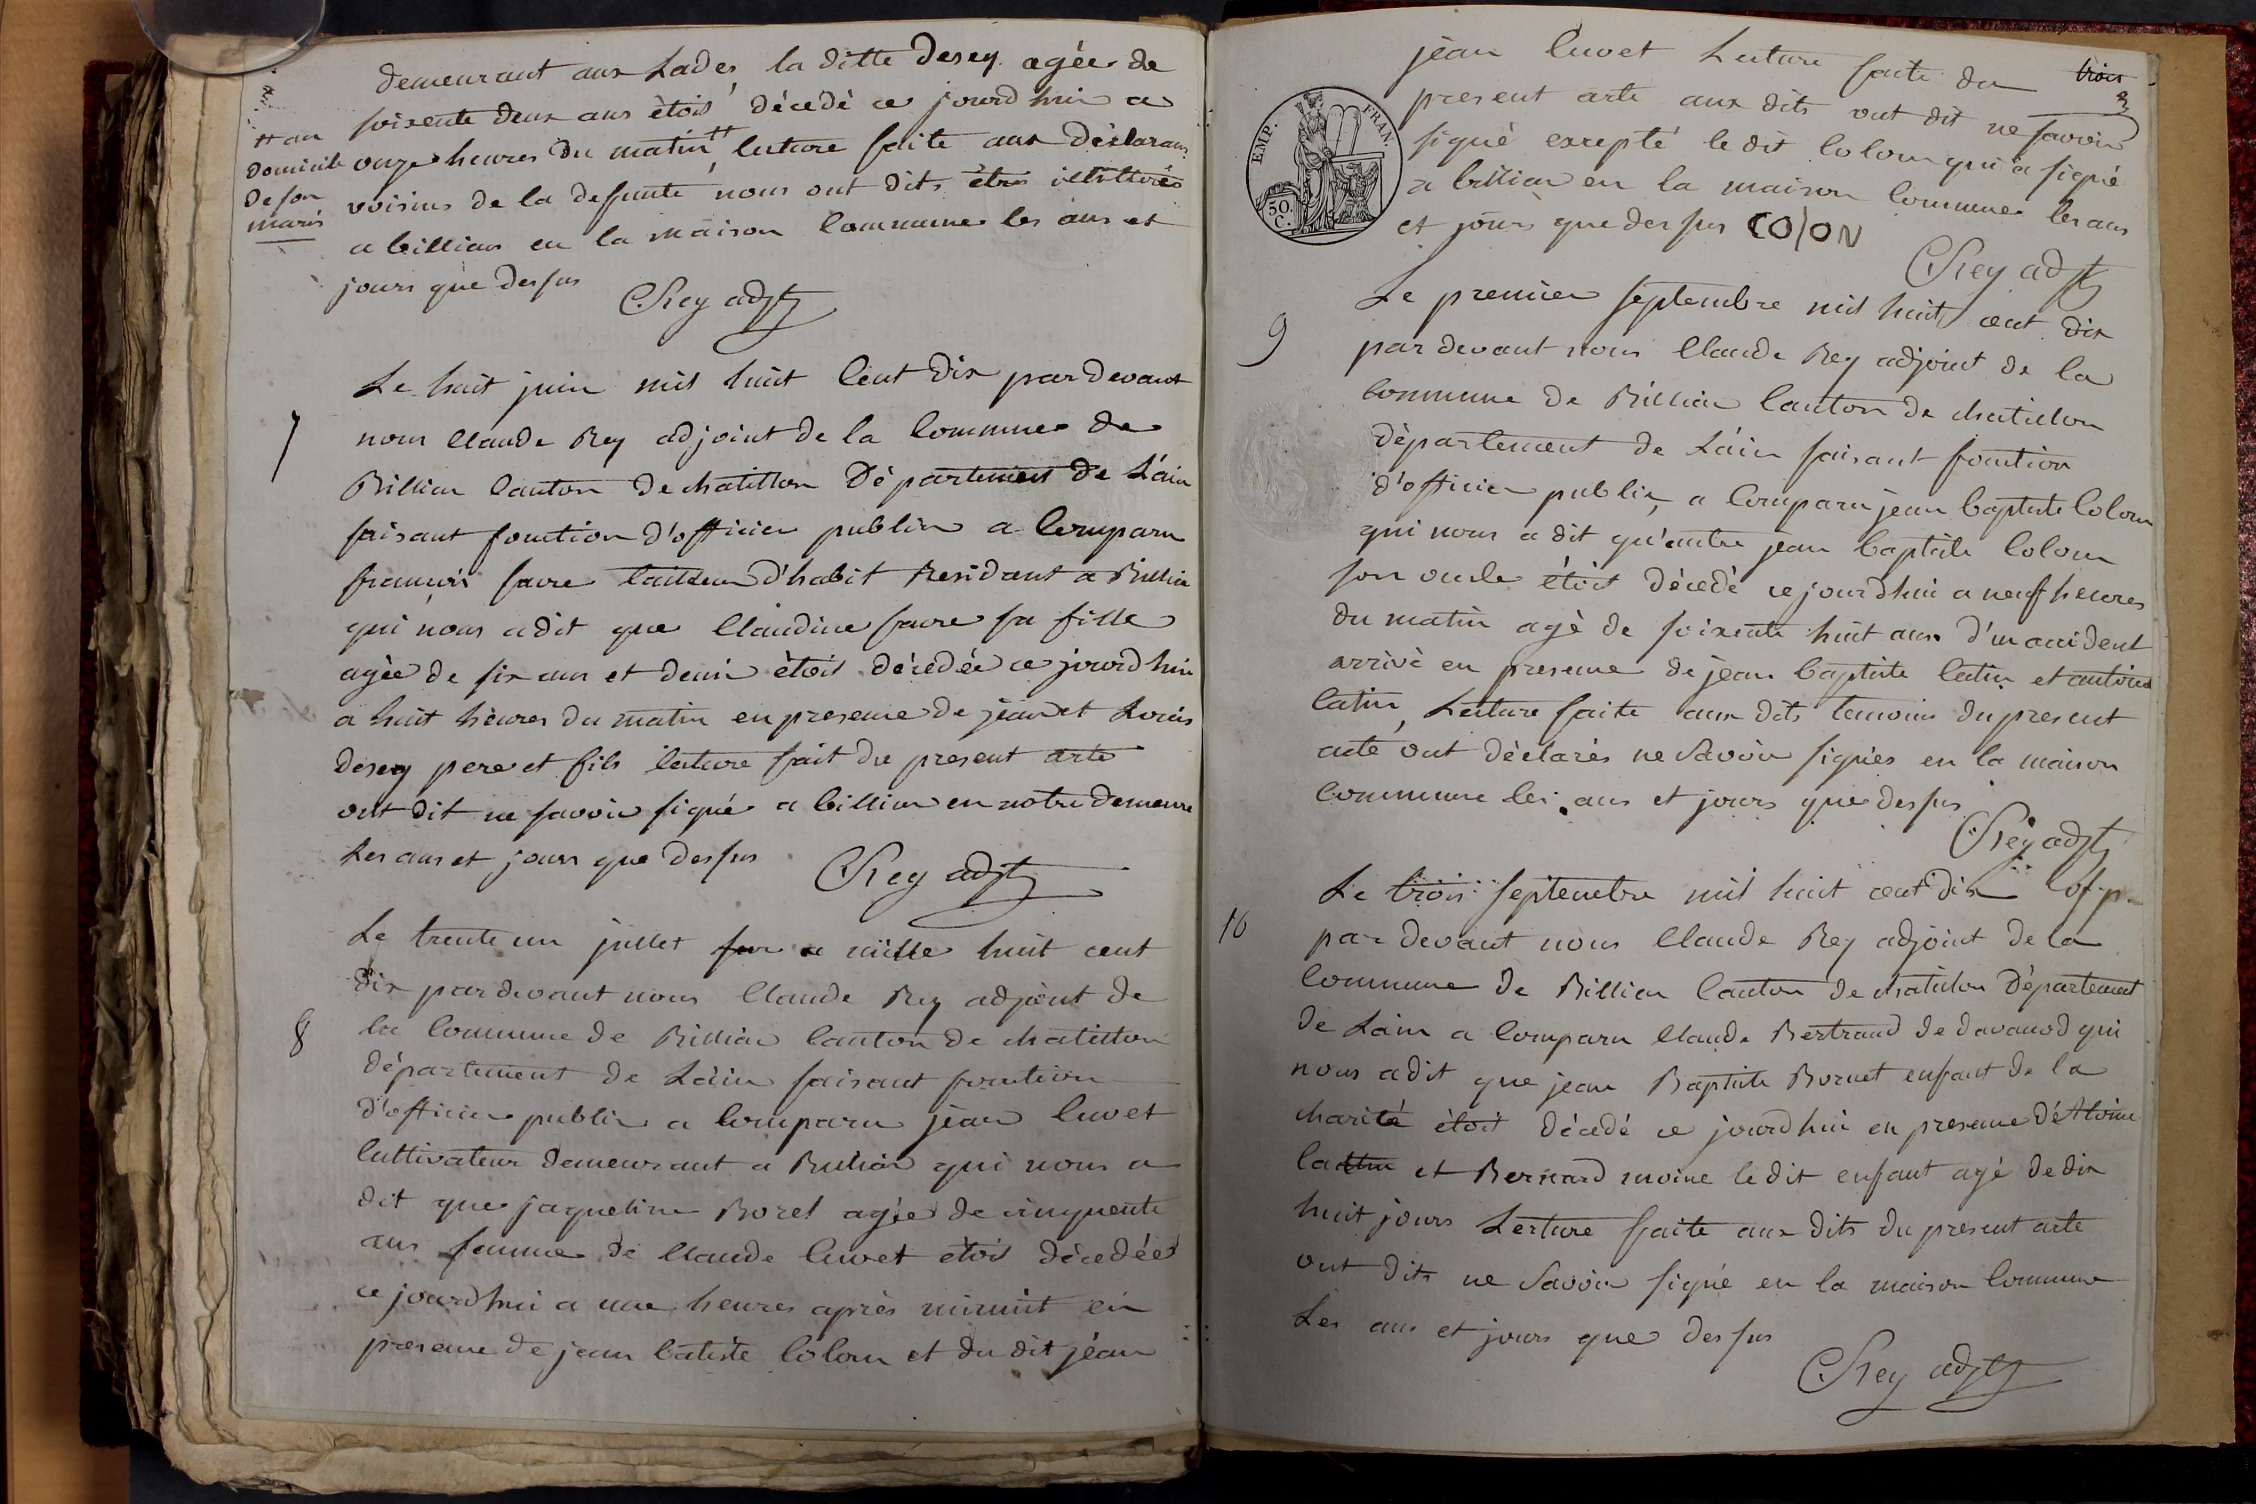 demeurant aux Lades, la ditte Desey agée de
soixente deux ans ètois décedé ce jourd'hui a
onze heures du matin ++, lecture faite aux Déclarans
++ au
domicile
de son
maris
voisins de la defunte nous ont dits être illitérés
a billian en la maison Commune les ans et
jours que dessus CRey adjt
7
Le huit juin mil huit Cent dix par devant
nous Claude Rey adjoint de la Commune de
Billian Canton de chatillon Département de L'ain
faisant fonction d'officier public a Comparu
françois favre tailleur d'habit Residant a Billian
qui nous a dit que Claudine favre sa fille
agée de six ans et demi étois décedée ce jourd'hui
a huit heures du matin en presence de jean et Louis
desey pere et fils lecture fait du present acte
ont dit ne savoir signé a billian en notre demeure
Les ans et jours que dessus CRey adjt
8
Le trente un juillet mille huit cent
dix par devant nous Claude Rey adjoint de
la Commune de Billian Canton de chatillon
département de L'ain faisant fonction
d'officier public a Comparu jean Cuvet
Cultivateur demeurant a Billian qui nous a
dit que jaqueline Borel agée de cinquente
ans femme de Claude Cuvet étois décedée
ce jourd'hui a une heures après minuit en
presence de jean batiste Colom et du dit jean
trois
jean Cuvet Lecture faite du
present acte aux dits ont dit ne savoir
signé excepté le dit Colom qui a signé
a billian en la maison Commune les ans
et jours que dessus COlON
CRey adjt
EMP. FRAN.
50.
C.
9
Le premier septembre mil huit cent dix
par devant nous Claude Rey adjoint de la
Commune de Billian Canton de chatillon
département de L'ain faisant fonction
d'officier public, a Comparu jean baptiste Colom
qui nous a dit qu'autre jean baptiste Colom
son oncle étoit décedé ce jourdhui a neuf heures
du matin agé de soixente huit ans d'un accident
arrivé en presence de jean baptiste latin et antoine
latin, Lecture faite aux dits temoins du present
acte ont déclarés ne savoir signés en la maison
Commune les ans et jours que dessus
CRey adjt
10
Le trois septembre mil huit cent dix
par devant nous Claude Rey adjoint de la
Commune de Billian Canton de chatillon Département
de Lain a Comparu Claude Bertrand de davanod qui
nous a dit que jean Baptiste Bornet enfant de la
charité étoit décedé ce jourd hui en presence
et Bernard moine le dit enfant agé de dix
huit jours Lecture faite aux dits du present acte
ont dits ne savoir signé en la maison Commune
Les ans et jours que dessus
CRey adjt